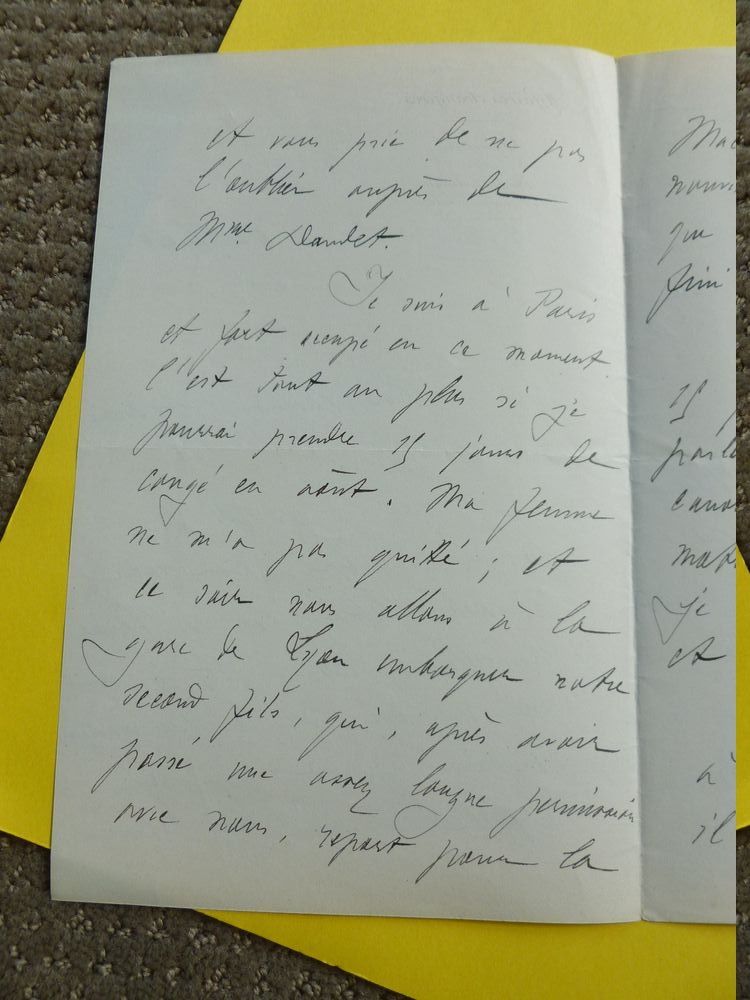 et vous prie de ne pas
l'oublier auprès de
Mme Daudet.
Je suis à Paris
et fort occupé en ce moment
C'est tout au plus si je
pourrai prendre 15 jours de
congé en août. Ma femme
ne m'a pas quitté ; et
ce soir nous allons à la
gare de Lyon embarquer notre
second fils, qui, après avoir
passé une assez longue permission
avec nous, repart pour la
que
fini
15
je
et
à
il